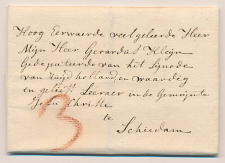 Hoog Eerwaerde veelgeleerde Heer
Mijn Heer Gerardus Kleyn
Gedeputeerde van het Synode
van Zuyd holland, en waardig
en geliefd Leeraer in de Gemeijnte
Jesu Christi
te
Schiedam
3